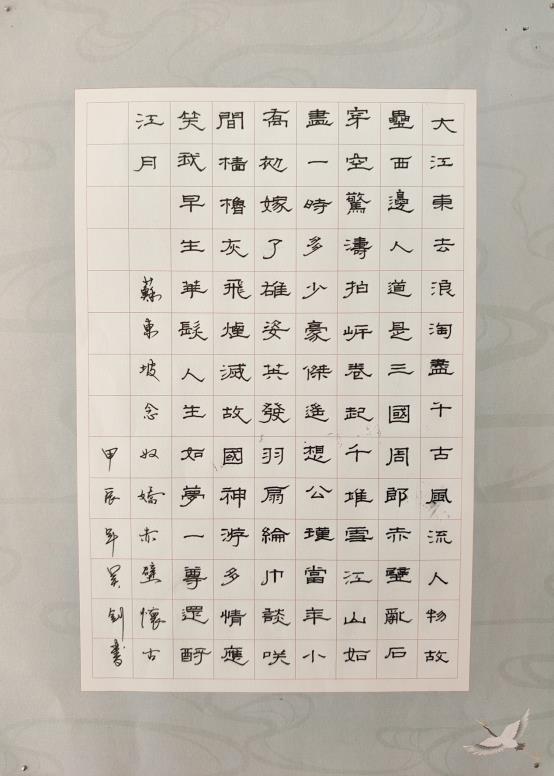 大江東去浪淘盡千古風流人物故
壘西邊人道是三國周郎赤壁亂石
穿空驚濤拍岸卷起千堆雪江山如
畫一時多少豪傑遥想公瑾當年小
喬初嫁了雄姿英發羽扇綸巾談咲
間檣櫓灰飛煙滅故國神游多情應
笑我早生華髮人生如夢一尊還酹
江月 蘇東坡念奴嬌赤壁懷古
甲辰年吴釗書